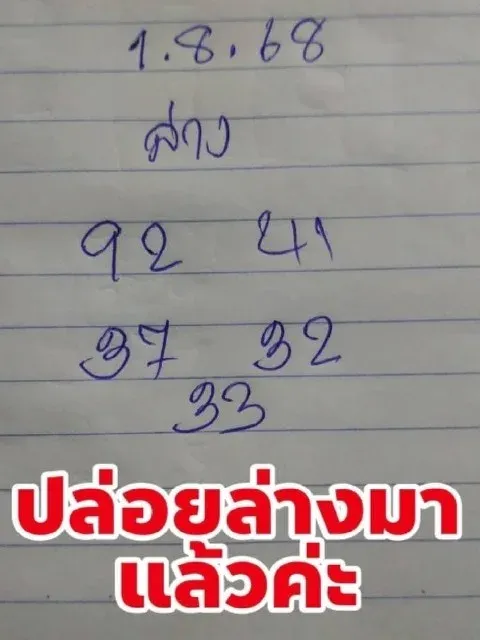 1.8.68
ล่าง
92 41
37 32
33
ปล่อยล่างมา
แล้วค่ะ